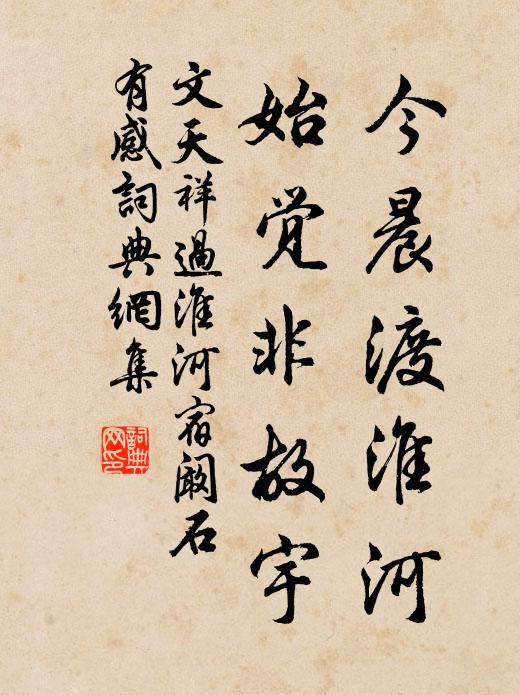 今晨渡淮河
始觉非故宇
文天祥過淮河宿闞石
有感詞典網集
詞典网印